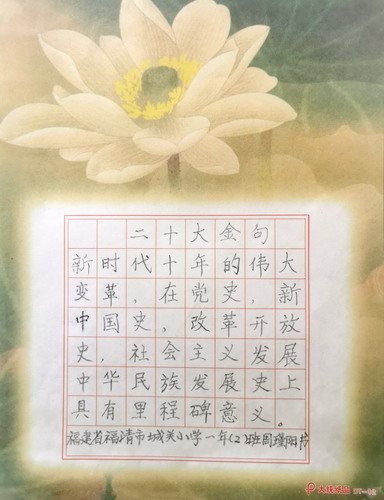 二十大金句
新时代十年的伟大
变革，在党史，新
中国史，改革开放
史，社会主义发展
中华民族发展史上
具有里程碑意义。
福建省福清市城关小学一年(2)班周